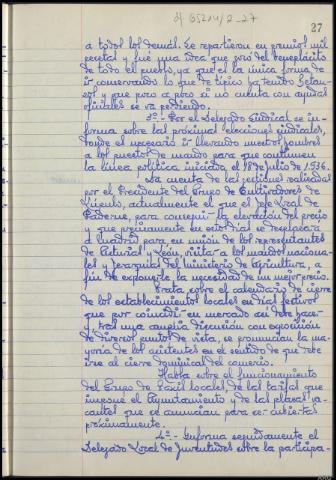 27
a todos los demás. Se repartieron en premios mil
pesetas y fué una idea que gozó del beneplácito
de todo el pueblo, ya que es la única forma de
ir conservando lo que de típico ha tenido
y que poco a poco si no cuenta con ayudas
oficiales se va perdiendo.
3º.- Por el Delegado Sindical se in-
forma sobre las próximas elecciones sindicales,
donde es necesario ir llevando nuestros hombres
a los puestos de mando para que continuen
la línea política iniciada el 18 de Julio de 1.936.
Da cuenta de las gestiones realizadas
por el Presidente del Grupo de Cultivadores de
Lúpulo, actualmente el que es Jefe Local de
para conseguir la elevación del precio
y que precisamente en este día se desplazará
a Madrid para en unión de los representantes
de Asturias y León, visitar a los mandos naciona-
les y Jerarquías del Ministerio de Agricultura, a
fin de exponerle la necesidad de un mejor precio.
Trata sobre el calendario de cierre
de los establecimientos locales en días festivos
que por coincidir en mercado así debe hacer-
tras una amplia discusión con exposición
de diversos puntos de vista, se pronuncian la ma-
yoría de los asistentes en el sentido de que debe
irse al cierre dominical del comercio.
Habla sobre el funcionamiento
del Grupo de Taxis locales, de las tarifas que
impone el Ayuntamiento y de las plazas va-
cantes que se anuncian para ser cubiertas
próximamente.
4º.- Informa seguidamente el
Delegado Local de Juventudes sobre la participa-